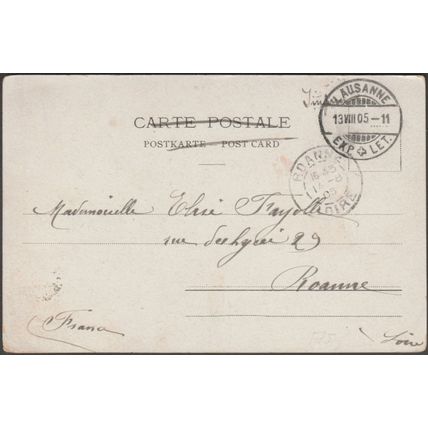 LAUSANNE
13 VIII 05 - 11
EXP. LET.
CARTE POSTALE
POSTKARTE - POST CARD
ROANNE
16 45
LOIRE
Mademoiselle Elise Fayolle
rue 29
Roanne
(France) Loire